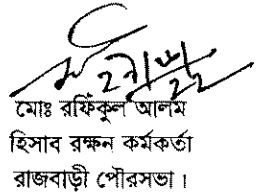 মোঃ রফিকুল আলম
হিসাব রক্ষন কর্মকর্তা
রাজবাড়ী পৌরসভা।